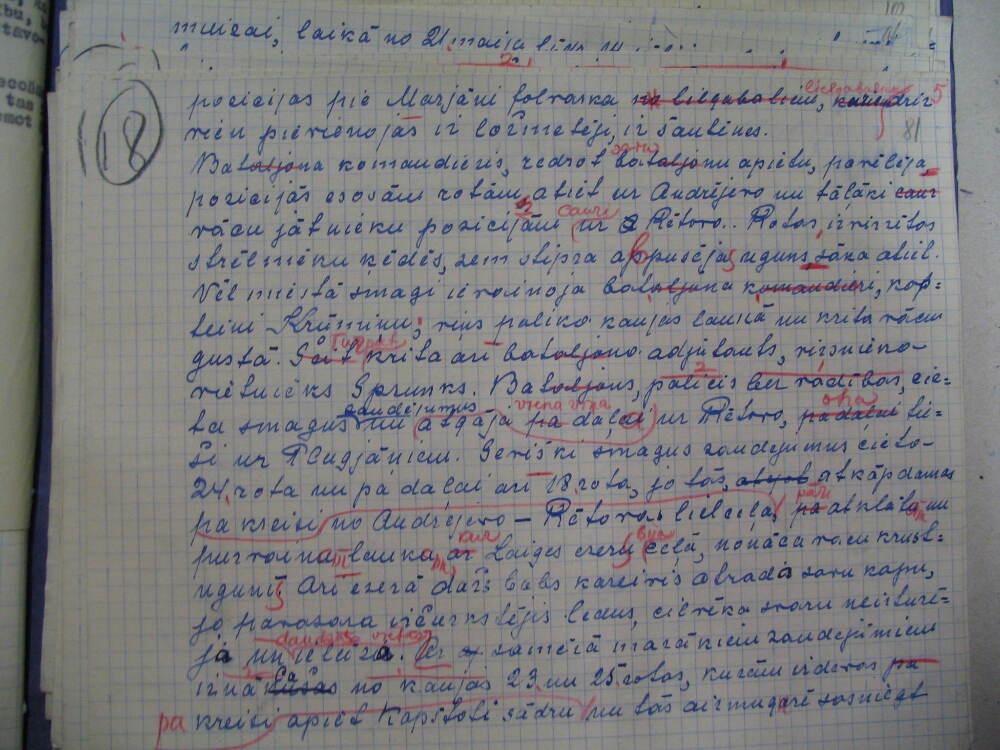 muižai, laikā no 21. maija
18
81
pozicijas pie Marjāni folvarka lielgabaliem,
vien pievienojas ir ložmetēji, ir šautenes.
Bataljona komandieris, redzot bataljonu apietu, pavēlēja
pozicijās esošām rotām atiet uz Andrējevo un tālāki caur
vācu jātnieku pozicijām uz Rētovo. Rotas, izvirzītas
strēlnieku ķēdēs, zem stipra abpusēja uguns sāka atiet.
Vēl mežā smagi ievainoja bataljona komandieri, kap-
teini Krūmiņu; viņš palika kaujas laukā un krita vācu
gūstā. Turpat krita arī bataljona adjutants, virsnieka-
vietnieks Sprunks. Bataljons, palicis bez vadības, cie-
ta smagus zaudējumus un atgāja pa daļai uz Rētovo, pa daļai tie-
ši uz Plugjāniem. Sevišķi smagus zaudējumus cieta
24. rota un pa daļai arī 18. rota, jo tās, atkāpdamās
pa kreisi no Andrējevo – Rētovas lielceļa, pa atklātu un
purvainu lauku, ar Laiges ezeru ceļā, nonāca vācu krust-
ugunī. Arī ezerā dažs labs kareivis atrada savu kapu,
jo pavasara ledus, cilvēka svaru neizturē-
ja un ielūza. Ar samērā mazākiem zaudējumiem
iznāca no kaujas 23. un 25. rotas, kurām izdevās pa
pa kreisi apiet Kapstati sādžu un tās aizmugurē sasniegt